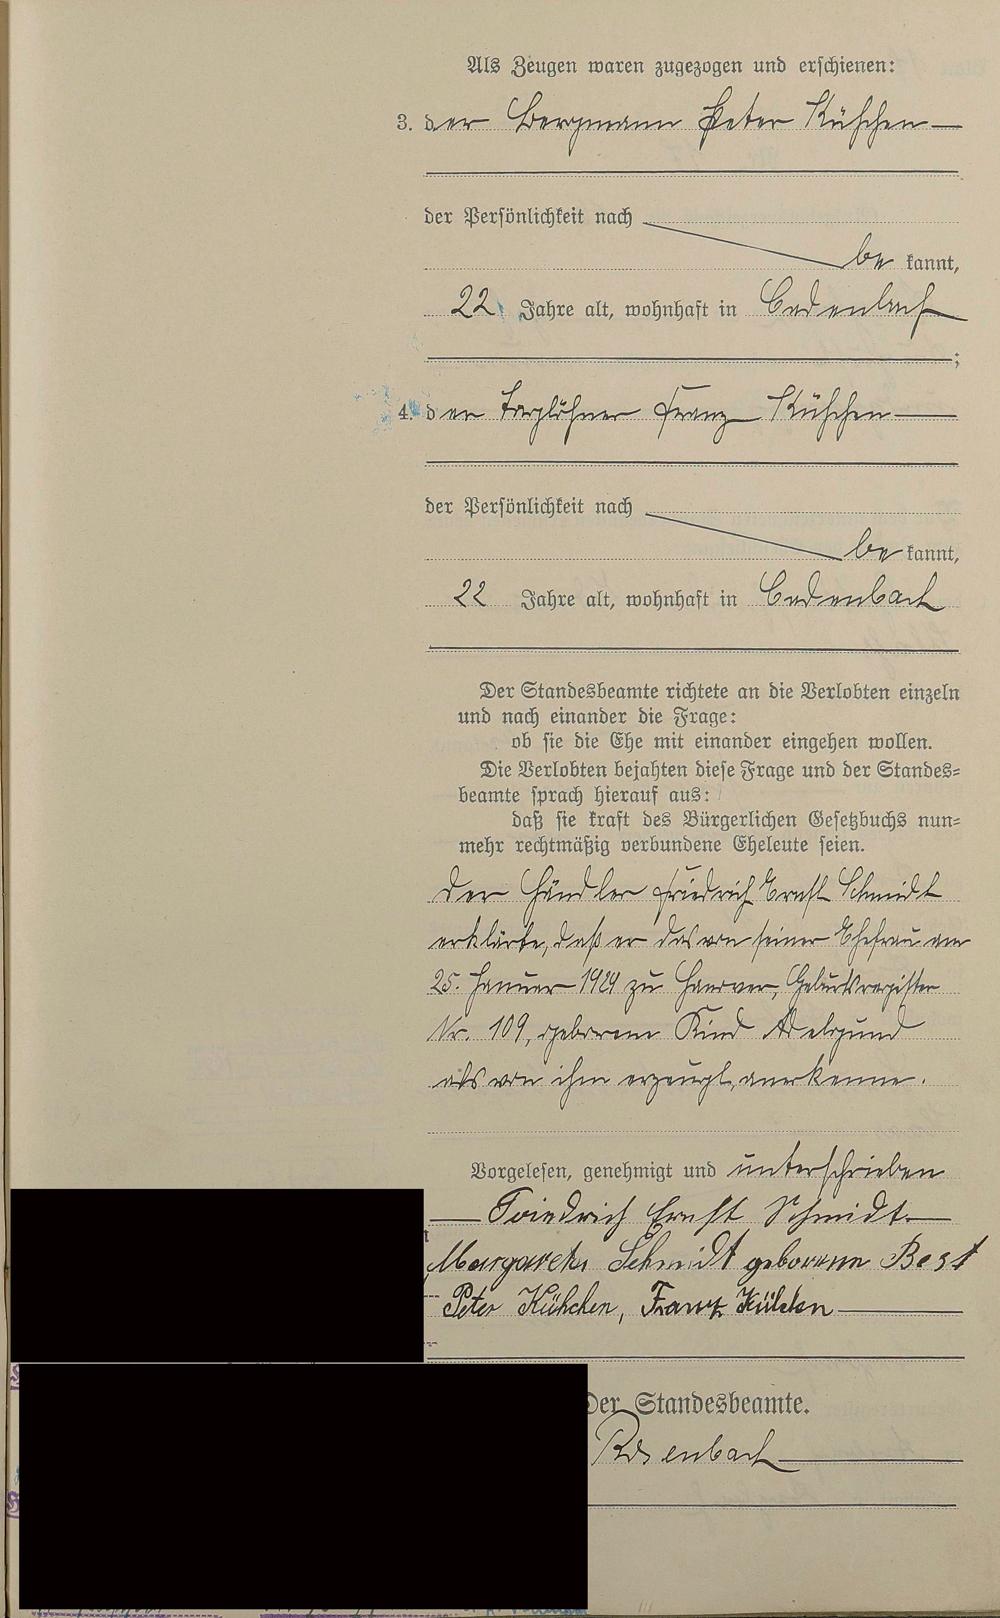 Als Zeugen waren zugezogen und erschienen:
3. der Bergmann Peter Kühchen
der Persönlichkeit nach
be kannt,
22 Jahre alt, wohnhaft in Cadenbach
;
4. der Taglöhner Franz Kühchen
der Persönlichkeit nach
be kannt,
22 Jahre alt, wohnhaft in Cadenbach
Der Standesbeamte richtete an die Verlobten einzeln
und nach einander die Frage:
ob sie die Ehe mit einander eingehen wollen.
Die Verlobten bejahten diese Frage und der Standes=
beamte sprach hierauf aus:
daß sie kraft des Bürgerlichen Gesetzbuchs nun=
mehr rechtmäßig verbundene Eheleute seien.
Der Händler Friedrich Ernst Schmidt
erklärte, daß er das von seiner Ehefrau am
25. Januar 1924 zu Geburtsregister
Nr. 109, geborene Kind Adelgund
als von ihm erzeugt, anerkenne.
Vorgelesen, genehmigt und unterschrieben
Friedrich Ernst Schmidt
Margareta Schmidt geborene Best
Peter Kühchen, Franz Kühchen
Der Standesbeamte.
Rosenbach